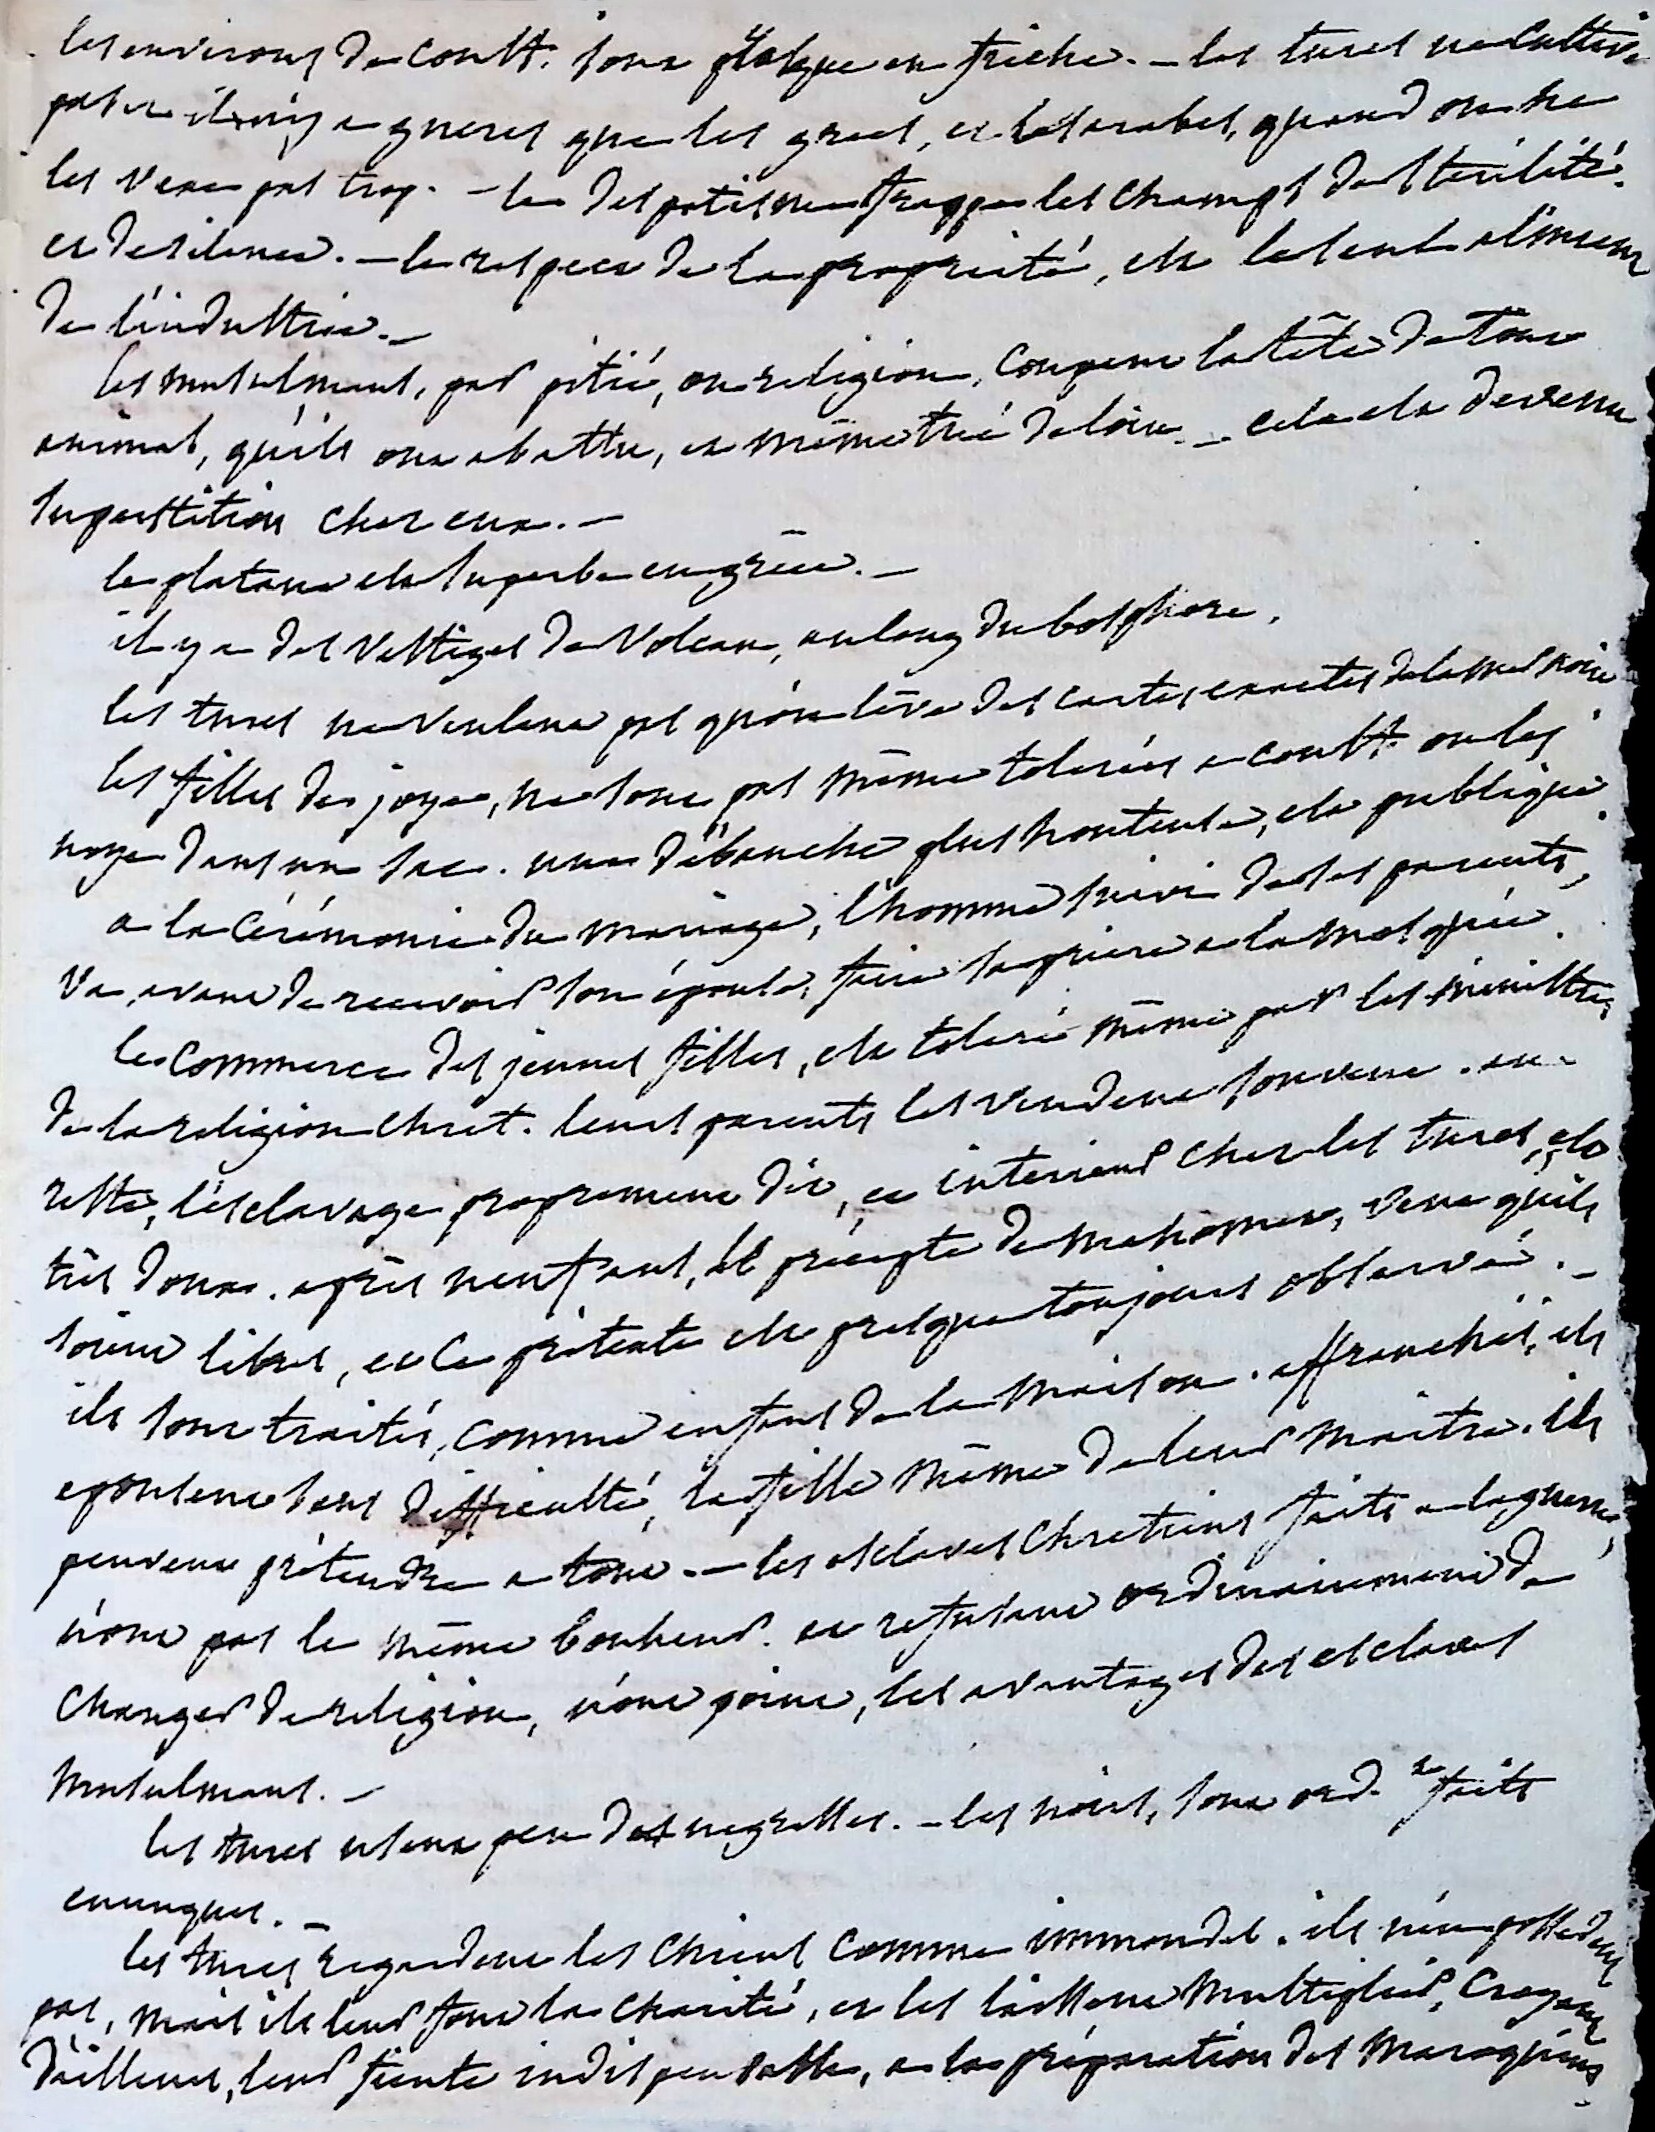 les environs de Constt. sont presque en friche. — les turcs ne cultivent
pas et il n'y a gueres que les grecs, et les arabes, quand on ne
les vexe pas trop. — le despotisme frappe les champs de stérilité.
et de silence. — le respect de la propriété, est le seul aliment
de l'industrie. —
les musulmans, par pitié, ou religion, coupent la tête de tout
animal, qu'ils ont abattu, et même tué de loin. — cela est devenu
superstition chez eux. —
le platane est superbe en grèce. —
il y a des vestiges de Volcan, au long du bosphore.
les turcs ne veulent pas qu'on lève des cartes exactes de la mer noire
les filles de joye, ne sont pas même tolerées a Constt. on les
noye dans un sac. une débauche plus honteuse, est publique.
a la cérémonie du mariage, l'homme suivi de ses parents,
va, avant de recevoir son épouse, faire sa priere a la mosquée.
le commerce des jeunes filles, est toleré même par les ministres
de la religion chret. leurs parents les vendent souvent. au
reste, l'esclavage proprement dit, et interieur chez les turcs, est
très doux. après neuf ans, le précepte de mahomet, veut qu'ils
soient libres, et ce prétexte est presque toujours observé. —
ils sont traités, comme enfans de la maison. affranchis, ils
epousent sans difficulté, la fille même de leur maitre. ils
peuvent prétendre a tout. — les esclaves chretiens faits a la guerre,
n'ont pas le même bonheur. et refusant ordinairement de
changer de religion, n'ont point, les avantages des esclaves
musulmans. —
les turcs usent peu des negresses. — les noirs, sont ord.re faits
eunuques. —
les turcs regardent les chiens comme immondes. ils n'en possedent
pas, mais ils leur font la charité, et les laissent multiplier, croyant
d'ailleurs, leur fiente indispensable, a la préparation des maroquins.